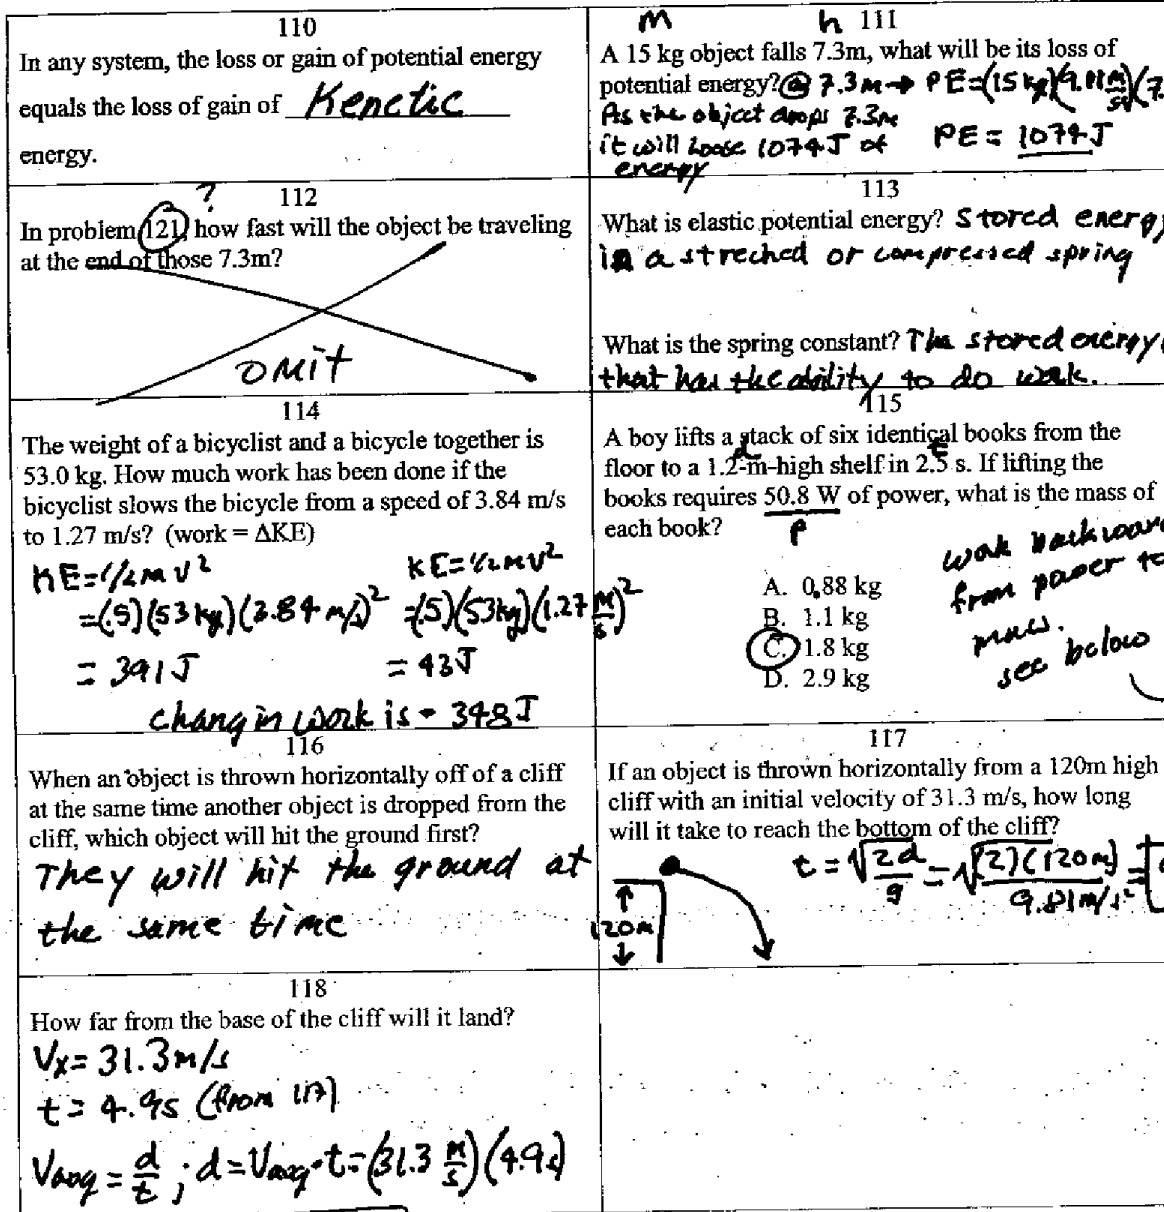 110
In any system, the loss or gain of potential energy
equals the loss of gain of Kenetic
energy.
m h 111
A 15 kg object falls 7.3m, what will be its loss of
potential energy? @ 7.3m → PE=(15 kg)(9.81 m/s²)(7.
As the object drops 7.3m
it will loose 1074J of
energy
PE = 1074J
?
112
In problem 121, how fast will the object be traveling
at the end of those 7.3m?
OMIT
113
What is elastic potential energy? Stored energy
in a streched or compressed spring
What is the spring constant? The stored energy
that has the ability to do work.
114
The weight of a bicyclist and a bicycle together is
53.0 kg. How much work has been done if the
bicyclist slows the bicycle from a speed of 3.84 m/s
to 1.27 m/s? (work = ΔKE)
KE=1/2mv² KE=1/2mv²
=(.5)(53kg)(3.84 m/s)² =(.5)(53kg)(1.27 m/s)²
= 391J = 43J
chang in work is - 348J
115
A boy lifts a stack of six identical books from the
d t
floor to a 1.2-m-high shelf in 2.5 s. If lifting the
books requires 50.8 W of power, what is the mass of
each book? P
A. 0.88 kg
B. 1.1 kg
C. 1.8 kg
D. 2.9 kg
work backward
from power to
mass.
see below
116
When an object is thrown horizontally off of a cliff
at the same time another object is dropped from the
cliff, which object will hit the ground first?
They will hit the ground at
the same time
117
If an object is thrown horizontally from a 120m high
cliff with an initial velocity of 31.3 m/s, how long
will it take to reach the bottom of the cliff?
t = √2d/g = √(2)(120m)/9.81m/s² =
120m
118
How far from the base of the cliff will it land?
Vx= 31.3m/s
t= 4.9s (from 117)
Vavg = d/t ; d=Vavg·t=(31.3 m/s)(4.9s)